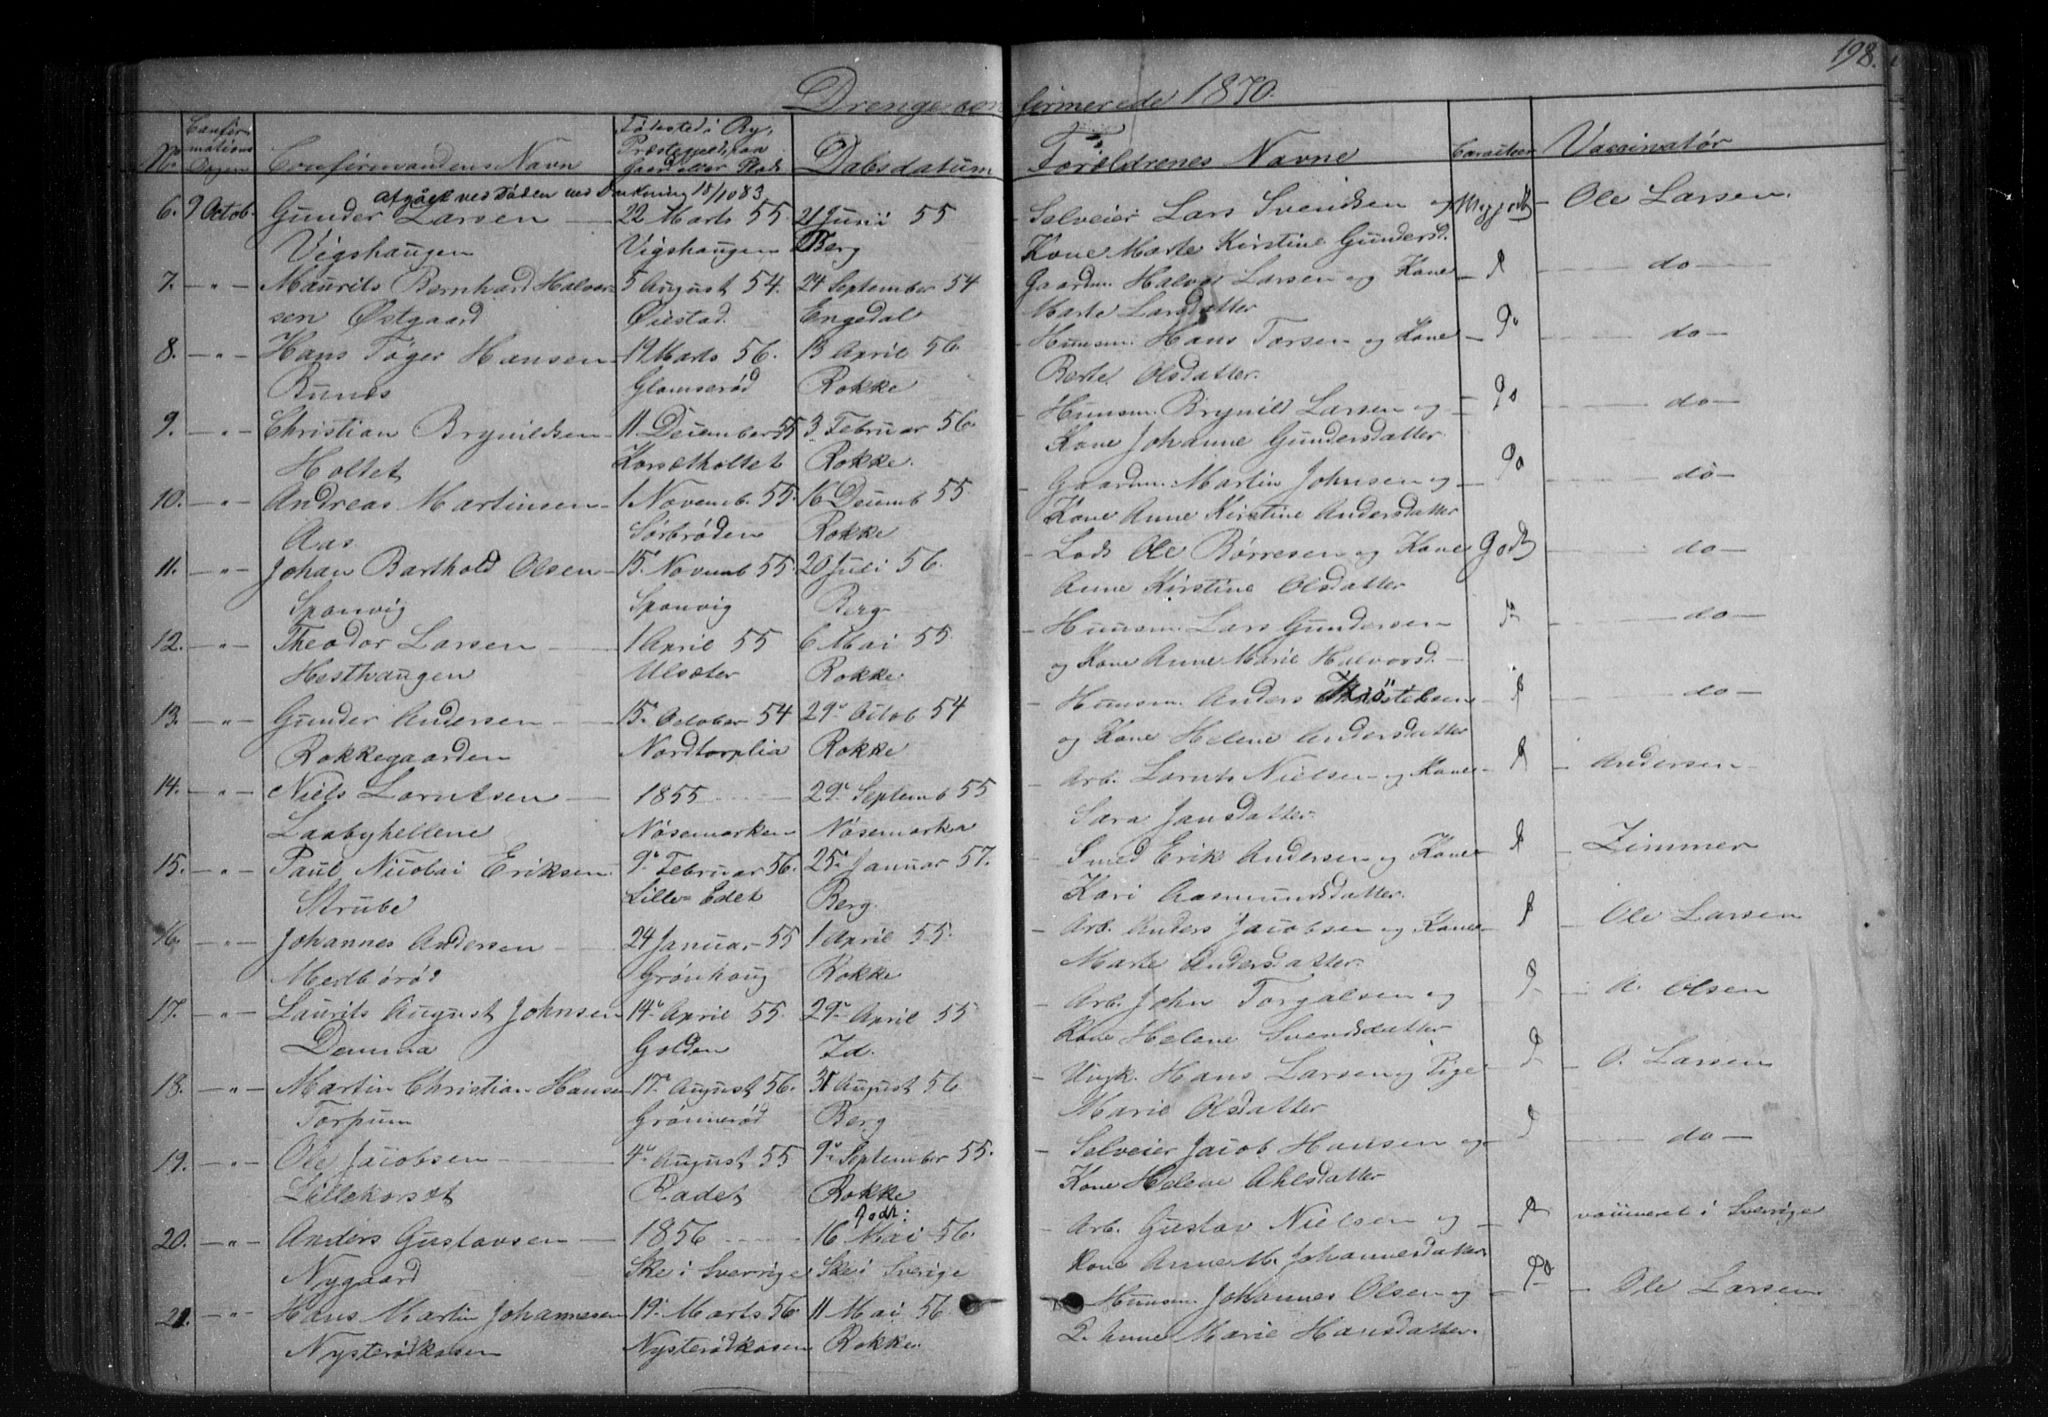 198.
Drenge confirmerede 1870.
No. Confirmations Dagen Confirmandens Navn Fødested i By, Præstegjeld, paa Gaard eller Plads Dabsdatum Forældrenes Navne Caracteer Vaccinatør
afgået ved Døden ved Drukning 18/10 83
6. 9 Octob. Gunder Larsen 22 Marts 55 21 Junii 55 Selveier Lars Svendsen og Ole Larsen.
Vigshaugen Vigshaugen Berg Kone Marte Kirstine Gundersd.
7. -"- Maurits Bernhard Halvor- 5 August 54. 24 September 54 Gaardm. Halvor Larsen og Kone do
sen Østgaard Øiestad Engedal Marte Larsdatter
8. -"- Hans Tøger Hansen 19 Marts 56. 13 April 56 Huusm. Hans Torsen og Kone do
Bunes Glomserød Rokke Berte Olsdatter.
9. -"- Christian Brynildsen 11 December 55 3 Februar 56. Huusm. Brynild Larsen og do
Holtet Korsætholtet Rokke. Kone Johanne Gundersdatter
10. -"- Andreas Martinsen 1 Novemb. 55. 16 Decemb 55 Gaardm. Martin Johnsen og do
Aas Sørbrøden Rokke Kone Anne Kirstine Andersdatter
11. -"- Johan Barthold Olsen 15 Novemb 55. 20 Juli 56. Lods Ole Børresen og Kone Godt do
Sponvig Sponvig Berg Anne Kirstine Olsdatter
12. -"- Theodor Larsen 1 April 55 6 Mai 55 Huusm. Lars Gundersen do
Hesthaugen Ulsæter Rokke og Kone Anne Marie Halvorsd.
13. -"- Gunder Andersen 15 October 54 29 Octob 54 Huusm. Anders do
Rokkegaarden Nordtorplia Rokke og Kone Helene Andersdatter
14. -"- Niels Lorntsen 1855 29 Septemb 55 Arb. Lornts Nielsen og Kone Andersen
Laabyhellene Nøsemarken Nøsemarken Sara Jansdatter
15. -"- Paul Nicolai Eriksen 9 Februar 56. 25 Januar 57. Smed Erik Andersen og Kone Zimmer
Strube Lille-Edet Berg. Kari Aasmundsdatter.
16. -"- Johannes Andersen 24 Januar 55 1 April 55. Arb. Anders Jacobsen og Kone Ole Larsen
Mestbørød Grønhaug Rokke Marte Andersdatter.
17. -"- Laurits August Johnsen 14 April 55. 29 April 55 Arb. John Torgalsen og A. Olsen
Demma Golden Id. Kone Helene Svendsdatter
18. -"- Martin Christian Hansen 17 August 56. 31 August 56 Ungk. Hans Larsen og Pige O. Larsen
Torpum Grønnerød Berg Marie Olsdatter
19. -"- Ole Jacobsen 4 August 55 9 September 55. Selveier Jacob Hansen og do
Lillekorsæt Rødet Rokke Kone Helene Ahlsdatter
20. -"- Anders Gustavsen 1856 16 Mai 56. Arb. Gustav Nielsen og vaccineret i Sverige
Nygaard Ske i Sverrige Ske i Sverige Kone Anne M. Johannesdatter
21. -"- Hans Martin Johannesen 19 Marts 56 11 Mai 56 Huusm. Johannes Olsen og Ole Larsen
Nysterødkasen Nysterødkasen Rokke Anne Marie Hansdatter.